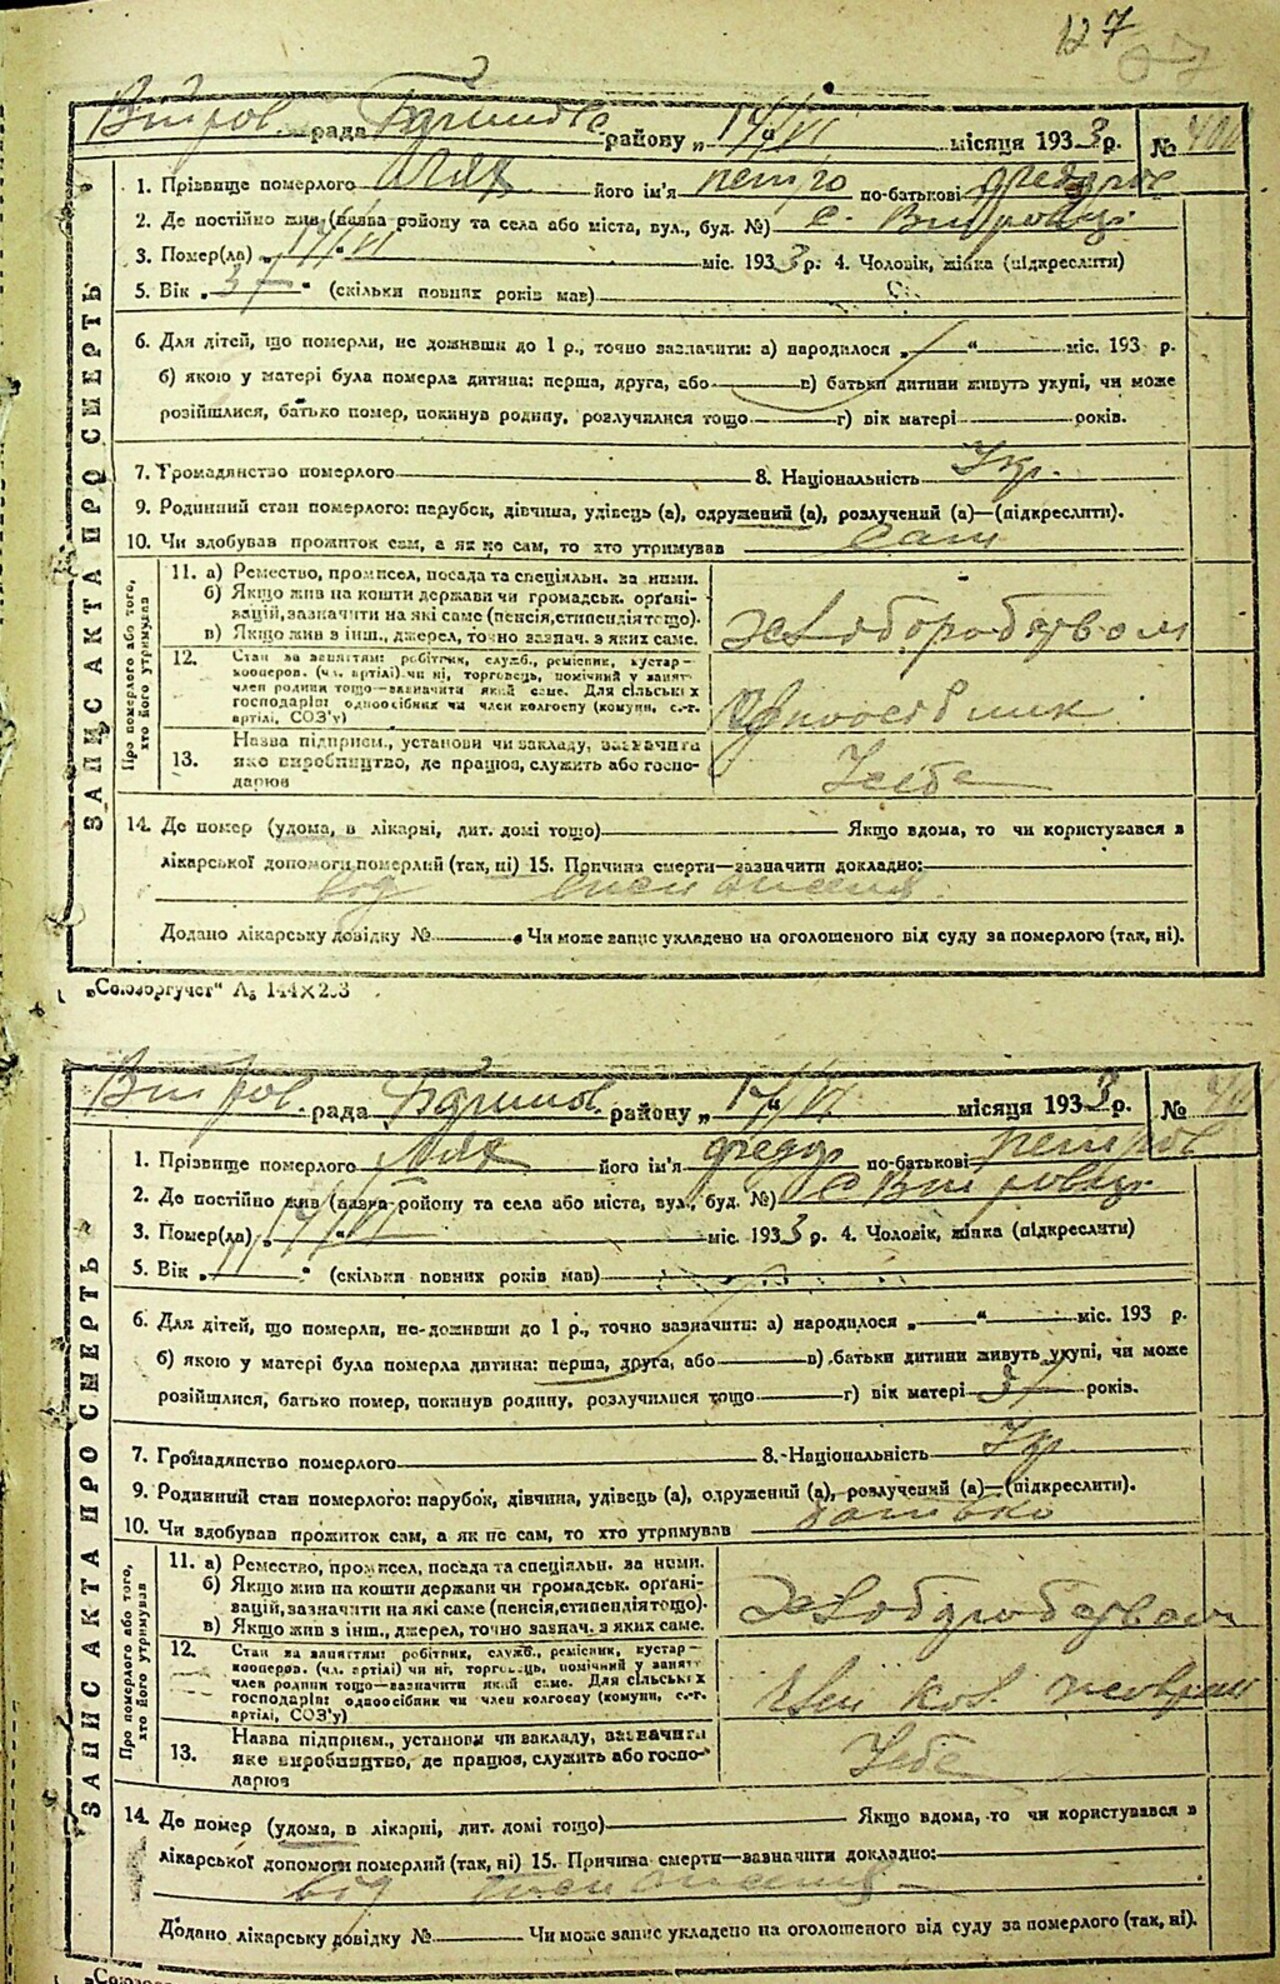 127
рада району „17/VI“ місяця 1933 р. №
1. Прізвище померлого Лях його ім'я петро по-батькові федоров
2. Де постійно жив (назва району та села або міста, вул., буд. №) с.
3. Помер(ла) „17/VI“ міс. 1933 р. 4. Чоловік, жінка (підкреслити)
5. Вік „37“ (скільки повних років мав)
6. Для дітей, що померли, не доживши до 1 р., точно зазначити: а) народилося „ “ міс. 193 р.
б) якою у матері була померла дитина: перша, друга, або в) батьки дитини живуть укупі, чи може
розійшлися, батько помер, покинув родину, розлучилися тощо г) вік матері років.
7. Громадянство померлого 8. Національність Укр.
9. Родинний стан померлого: парубок, дівчина, удівець (а), одружений (а), розлучений (а)—(підкреслити).
10. Чи здобував прожиток сам, а як не сам, то хто утримував сам
ЗАПИС АКТА ПРО СМЕРТЬ
Про померлого або того, хто його утримував
11. а) Ремество, промисел, посада та спеціяльн. за ними.
б) Якщо жив на кошти держави чи громадськ. орґані-
зацій, зазначити на які саме (пенсія, стипендія тощо).
в) Якщо жив з інш., джерел, точно зазнач. з яких саме.
хлоборобством
12. Стан за заняттям: робітник, служб., ремісник, кустар—
кооперов. (чл. артілі) чи ні, торговець, помічний у занятт
член родини тощо—зазначити який саме. Для сільських
господарів: одноосібник чи член колгоспу (комуни, с.-г.
артілі, СОЗ'у)
Одноосібник
13. Назва підприєм., установи чи закладу, зазначити
яке виробництво, де працює, служить або госпо-
дарює
У себе
14. Де помер (удома, в лікарні, дит. домі тощо) Якщо вдома, то чи користувався в
лікарської допомоги померлий (так, ні) 15. Причина смерти—зазначити докладно:
від
Додано лікарську довідку № Чи може запис укладено на оголошеного від суду за померлого (так, ні).
„Союзоргучет“ А₅ 144×203
рада району „17/VI“ місяця 1933 р. №
1. Прізвище померлого Лях його ім'я федор по-батькові петров
2. Де постійно жив (назва району та села або міста, вул., буд. №) с
3. Помер(ла) „17/VI“ міс. 1933 р. 4. Чоловік, жінка (підкреслити)
5. Вік „11“ (скільки повних років мав)
6. Для дітей, що померли, не доживши до 1 р., точно зазначити: а) народилося „ “ міс. 193 р.
б) якою у матері була померла дитина: перша, друга, або в) батьки дитини живуть укупі, чи може
розійшлися, батько помер, покинув родину, розлучилися тощо г) вік матері років.
7. Громадянство померлого 8. Національність Укр.
9. Родинний стан померлого: парубок, дівчина, удівець (а), одружений (а), розлучений (а)—(підкреслити).
10. Чи здобував прожиток сам, а як не сам, то хто утримував батько
ЗАПИС АКТА ПРО СМЕРТЬ
Про померлого або того, хто його утримував
11. а) Ремество, промисел, посада та спеціяльн. за ними.
б) Якщо жив на кошти держави чи громадськ. орґані-
зацій, зазначити на які саме (пенсія, стипендія тощо).
в) Якщо жив з інш., джерел, точно зазнач. з яких саме.
хлоборобством
12. Стан за заняттям: робітник, служб., ремісник, кустар—
кооперов. (чл. артілі) чи ні, торговець, помічний у занятт
член родини тощо—зазначити який саме. Для сільських
господарів: одноосібник чи член колгоспу (комуни, с.-г.
артілі, СОЗ'у)
13. Назва підприєм., установи чи закладу, зазначити
яке виробництво, де працює, служить або госпо-
дарює
У себе
14. Де помер (удома, в лікарні, дит. домі тощо) Якщо вдома, то чи користувався в
лікарської допомоги померлий (так, ні) 15. Причина смерти—зазначити докладно:
від
Додано лікарську довідку № Чи може запис укладено на оголошеного від суду за померлого (так, ні).